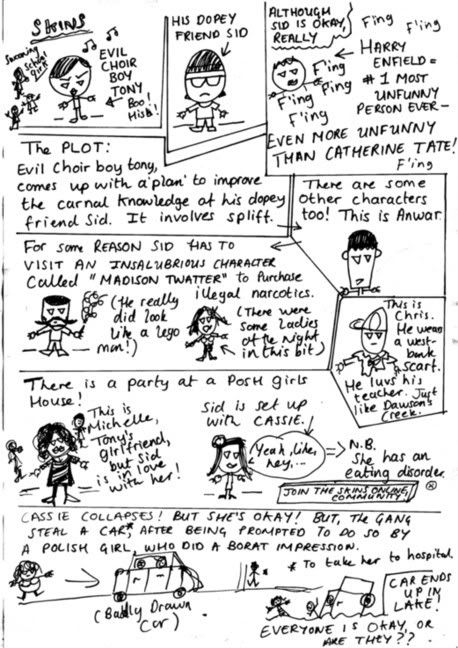 SKINS
Swooning
school
girls
EVIL
CHOIR
BOY
TONY
Boo!
Hiss!
HIS DOPEY
FRIEND SID
ALTHOUGH
SID IS OKAY,
REALLY
F'ing
F'ing
F'ing
F'ing
F'ing
F'ing
F'ing
Ping
HARRY
ENFIELD =
#1 MOST
UNFUNNY
PERSON EVER -
EVEN MORE UNFUNNY
THAN CATHERINE TATE!
F'ing
The PLOT:
Evil Choir boy tony,
comes up with a 'plan' to improve
the carnal knowledge of his dopey
friend Sid. It involves spliff.
There are some
other characters
too! This is Anwar.
For some REASON SID HAS TO
VISIT AN INSALUBRIOUS CHARACTER
Called "MADISON TWATTER" to Purchase
illegal narcotics.
(He really
did look
like a lego
man!)
(There were
some ladies
of the Night
in this bit)
This is
Chris.
He wears
a west-
bank
scarf.
He luvs his
teacher. Just
like Dawson's
Creek.
There is a party at a POSH girls
House!
This is
Michelle,
Tony's
girlfriend,
but Sid
is in love
with her!
Sid is set up
with CASSIE.
Yeah, like,
hey,...
N.B.
She has an
eating disorder
JOIN THE SKINS ONLINE
COMMUNITY!
CASSIE COLLAPSES! BUT SHE'S OKAY! BUT, THE GANG
STEAL A CAR*, AFTER BEING PROMPTED TO DO SO BY
A POLISH GIRL, WHO DID A BORAT IMPRESSION.
* To take her to hospital.
(Badly Drawn
Car)
CAR ENDS
UP IN
LAKE!
EVERYONE IS OKAY, OR
ARE THEY??